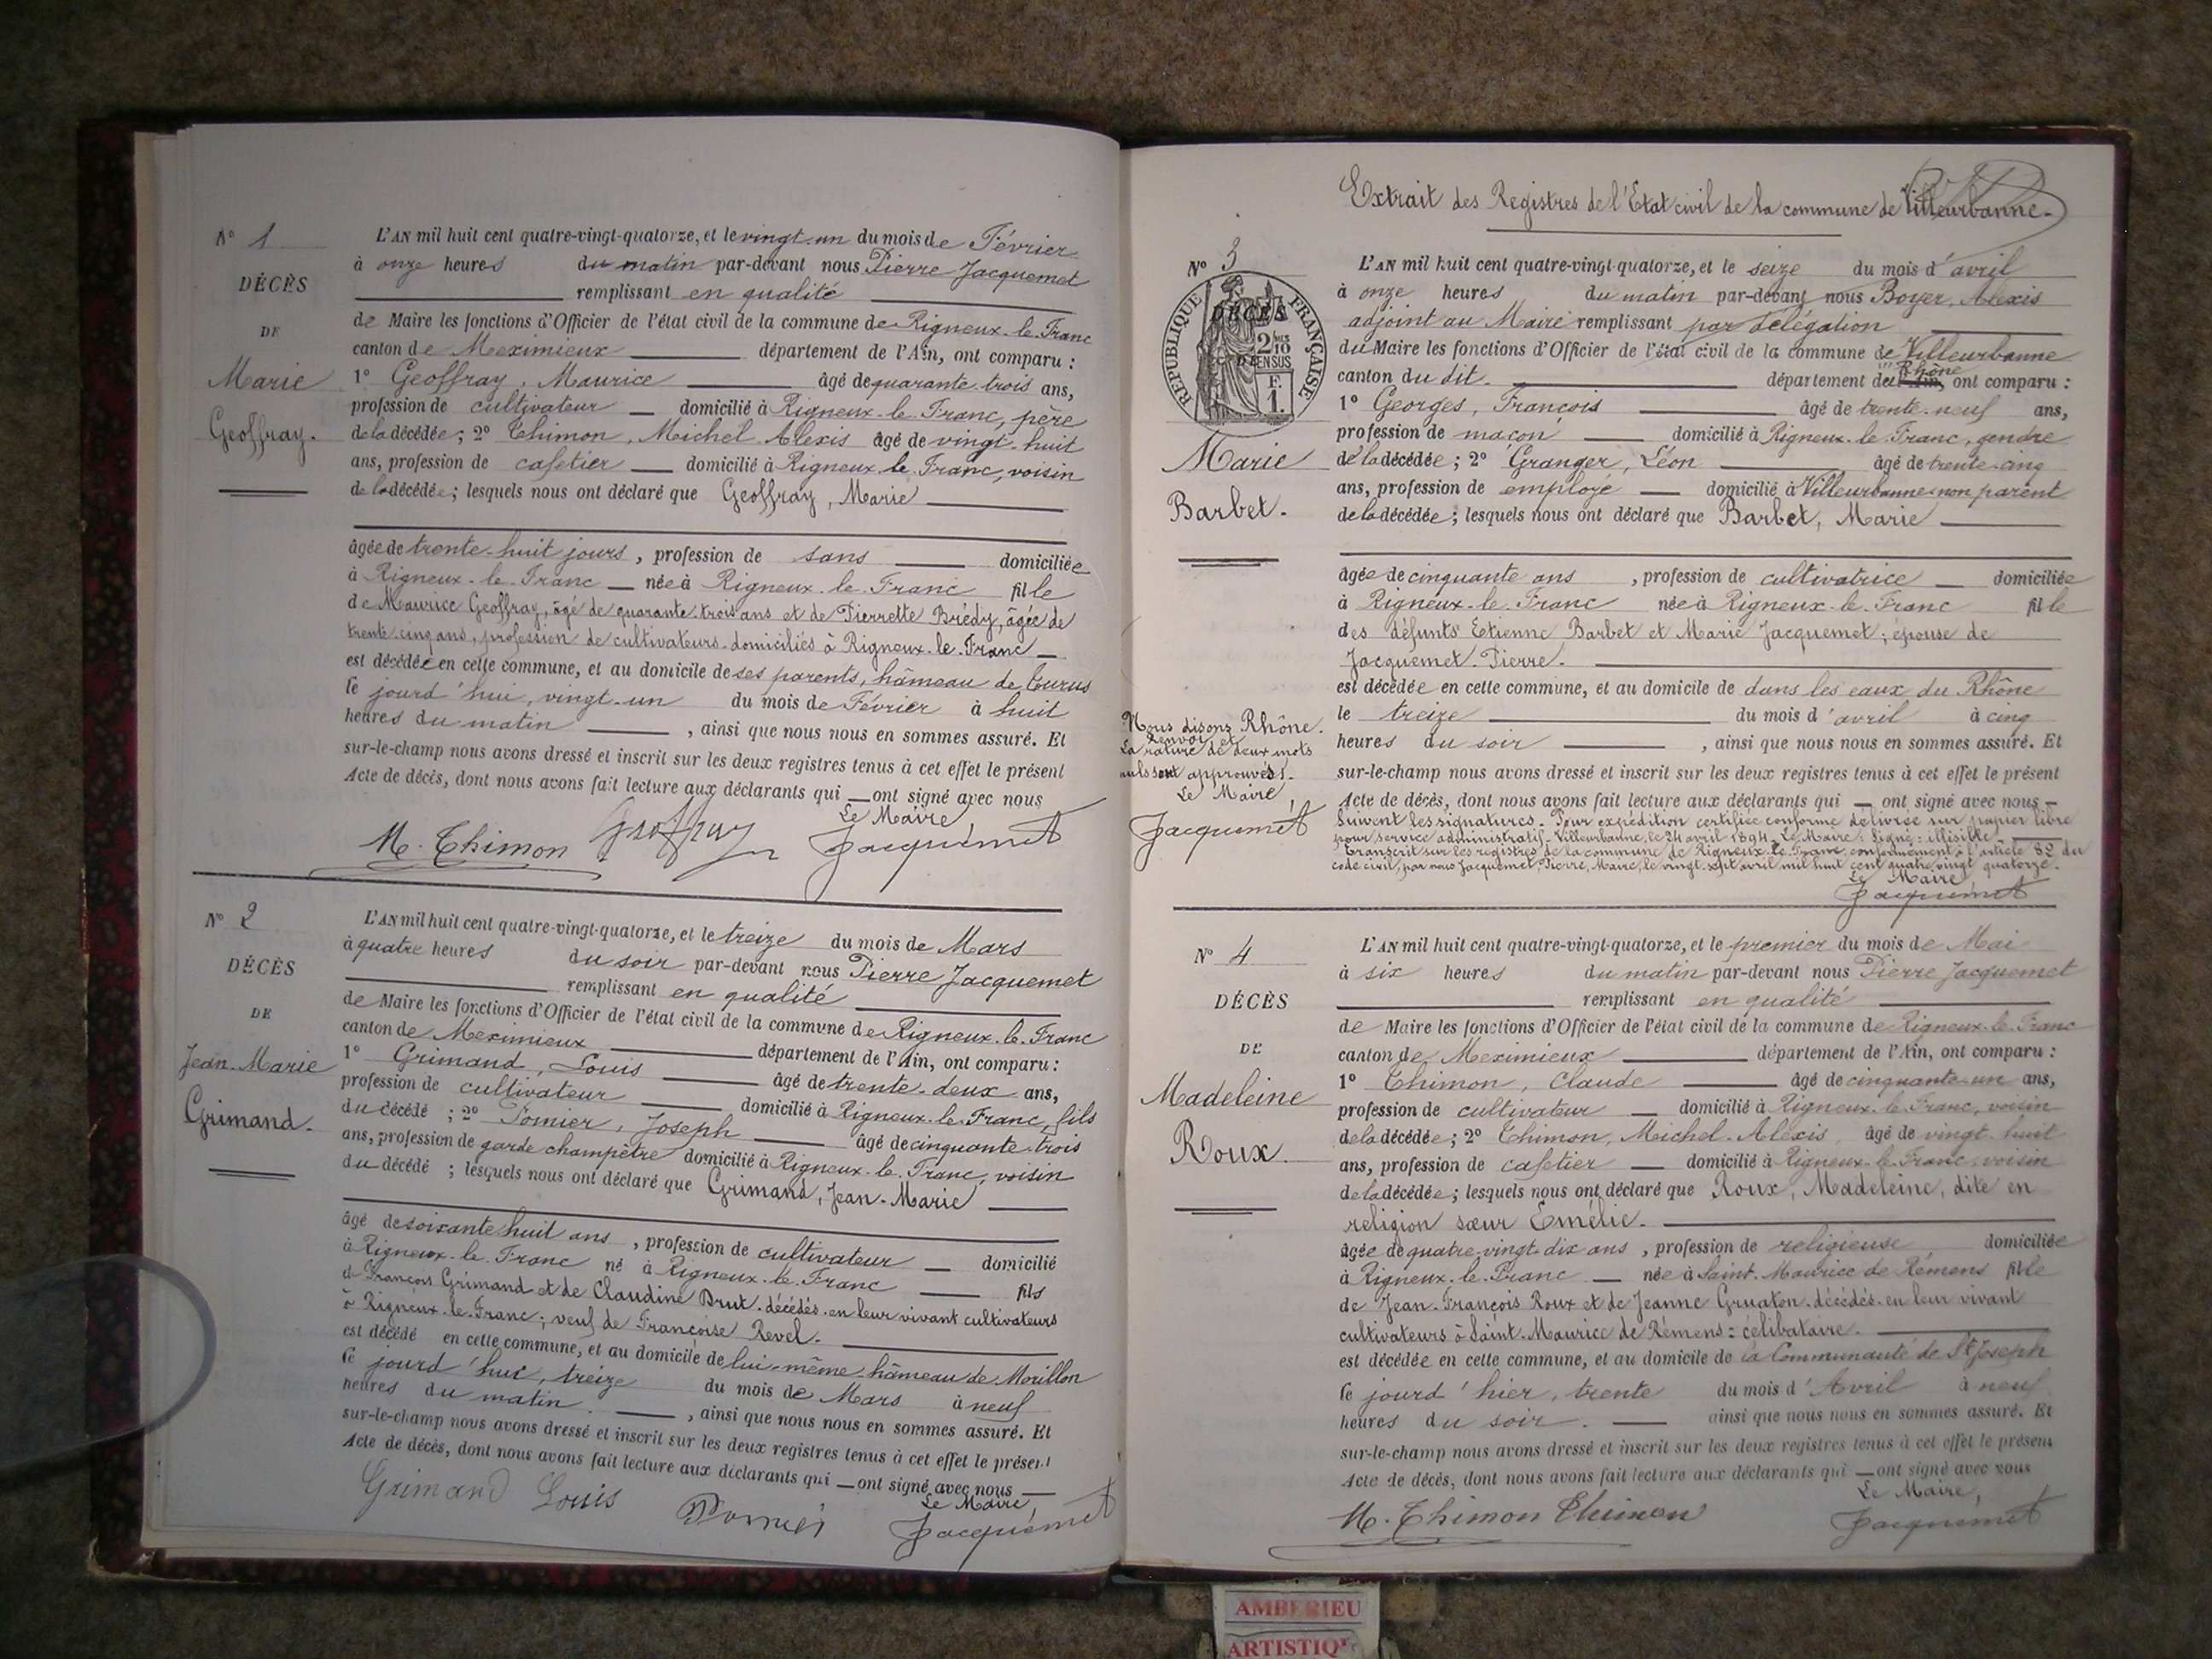 Nº 1
DÉCÈS
DE
Marie
Geoffray.
L'AN mil huit cent quatre-vingt-quatorze, et le vingt-un du mois de Février
à onze heures du matin par-devant nous Pierre Jacquemet
remplissant en qualité
de Maire les fonctions d'Officier de l'état civil de la commune de Rigneux-le-Franc
canton de Meximieux département de l'Ain, ont comparu :
1º Geoffray, Maurice âgé de quarante-trois ans,
profession de cultivateur domicilié à Rigneux-le-Franc, père
de la décédée ; 2º Thimon, Michel-Alexis âgé de vingt-huit
ans, profession de cafetier domicilié à Rigneux-le-Franc, voisin
de la décédée ; lesquels nous ont déclaré que Geoffray, Marie
âgée de trente-huit jours, profession de sans domiciliée
à Rigneux-le-Franc née à Rigneux-le-Franc fille
de Maurice Geoffray, âgé de quarante-trois ans et de Pierrette Brédy, âgée de
trente-cinq ans, profession de cultivateurs domiciliés à Rigneux-le-Franc
est décédée en cette commune, et au domicile de ses parents, hâmeau de
le jourd'hui, vingt-un du mois de Février à huit
heures du matin, ainsi que nous nous en sommes assuré. Et
sur-le-champ nous avons dressé et inscrit sur les deux registres tenus à cet effet le présent
Acte de décès, dont nous avons fait lecture aux déclarants qui ont signé avec nous
Le Maire,
M. Thimon Geoffray Jacquemet
Nº 2
DÉCÈS
DE
Jean-Marie
Grimand.
L'AN mil huit cent quatre-vingt-quatorze, et le treize du mois de Mars
à quatre heures du soir par-devant nous Pierre Jacquemet
remplissant en qualité
de Maire les fonctions d'Officier de l'état civil de la commune de Rigneux-le-Franc
canton de Meximieux département de l'Ain, ont comparu :
1º Grimand, Louis âgé de trente-deux ans,
profession de cultivateur domicilié à Rigneux-le-Franc, fils
du décédé ; 2º Pomier, Joseph âgé de cinquante-trois
ans, profession de garde champêtre domicilié à Rigneux-le-Franc, voisin
du décédé ; lesquels nous ont déclaré que Grimand, Jean-Marie
âgé de soixante huit ans, profession de cultivateur domicilié
à Rigneux-le-Franc né à Rigneux-le-Franc fils
de François Grimand et de Claudine Brut. décédés en leur vivant cultivateurs
à Rigneux-le-Franc ; veuf de Françoise Revel.
est décédé en cette commune, et au domicile de lui-même hâmeau de Morillon
le jourd'hui, treize du mois de Mars à neuf
heures du matin, ainsi que nous nous en sommes assuré. Et
sur-le-champ nous avons dressé et inscrit sur les deux registres tenus à cet effet le présent
Acte de décès, dont nous avons fait lecture aux déclarants qui ont signé avec nous
Le Maire,
Grimand Louis Pomier Jacquemet
Extrait des Registres de l'Etat civil de la commune de Villeurbanne.
Nº 3
REPUBLIQUE FRANÇAISE
DÉCÈS
2/10
EN SUS
F.
1.
Marie
Barbet.
L'AN mil huit cent quatre-vingt-quatorze, et le seize du mois d'avril
à onze heures du matin par-devant nous Boyer, Alexis
adjoint au Maire remplissant par délégation
du Maire les fonctions d'Officier de l'état civil de la commune de Villeurbanne
canton du dit. département du Rhône, ont comparu :
1º Georges, François âgé de trente-neuf ans,
profession de maçon domicilié à Rigneux-le-Franc, gendre
de la décédée ; 2º Granger, Léon âgé de trente-cinq
ans, profession de employé domicilié à Villeurbanne non parent
de la décédée ; lesquels nous ont déclaré que Barbet, Marie
âgée de cinquante ans, profession de cultivatrice domiciliée
à Rigneux-le-Franc née à Rigneux-le-Franc fille
des défunts Etienne Barbet et Marie Jacquemet ; épouse de
Jacquemet-Pierre.
est décédée en cette commune, et au domicile de dans les eaux du Rhône
le treize du mois d'avril à cinq
heures du soir, ainsi que nous nous en sommes assuré. Et
sur-le-champ nous avons dressé et inscrit sur les deux registres tenus à cet effet le présent
Acte de décès, dont nous avons fait lecture aux déclarants qui ont signé avec nous
Suivent les signatures. Pour expédition certifiée conforme délivrée sur papier libre
pour service administratif. Villeurbanne, le 24 avril 1894. Le Maire : Signé : illisible.
Transcrit sur les registres de la commune de Rigneux-le-Franc, conformément à l'article 82 du
code civil, par nous Jacquemet, Pierre, Maire, le vingt-sept avril mil huit cent quatre vingt quatorze.
Le Maire,
Jacquemet
Nous disons Rhône.
Renvoi et
La rature de deux mots
nuls sont approuvés.
Le Maire,
Jacquemet
Nº 4
DÉCÈS
DE
Madeleine
Roux.
L'AN mil huit cent quatre-vingt-quatorze, et le premier du mois de Mai
à six heures du matin par-devant nous Pierre Jacquemet
remplissant en qualité
de Maire les fonctions d'Officier de l'état civil de la commune de Rigneux-le-Franc
canton de Meximieux département de l'Ain, ont comparu :
1º Thimon, Claude âgé de cinquante-un ans,
profession de cultivateur domicilié à Rigneux-le-Franc, voisin
de la décédée ; 2º Thimon, Michel-Alexis, âgé de vingt-huit
ans, profession de cafetier domicilié à Rigneux-le-Franc, voisin
de la décédée ; lesquels nous ont déclaré que Roux, Madeleine, dite en
religion sœur Emélie.
âgée de quatre-vingt-dix ans, profession de religieuse domiciliée
à Rigneux-le-Franc née à Saint-Maurice de Rémens fille
de Jean-François Roux et de Jeanne Gruaton. décédés en leur vivant
cultivateurs à Saint-Maurice de Rémens : célibataire.
est décédée en cette commune, et au domicile de la Communauté de St Joseph
le jourd'hier, trente du mois d'Avril à neuf
heures du soir. ainsi que nous nous en sommes assuré. Et
sur-le-champ nous avons dressé et inscrit sur les deux registres tenus à cet effet le présent
Acte de décès, dont nous avons fait lecture aux déclarants qui ont signé avec nous
Le Maire,
M. Thimon Thimon Jacquemet
AMBERIEU
ARTISTIQ